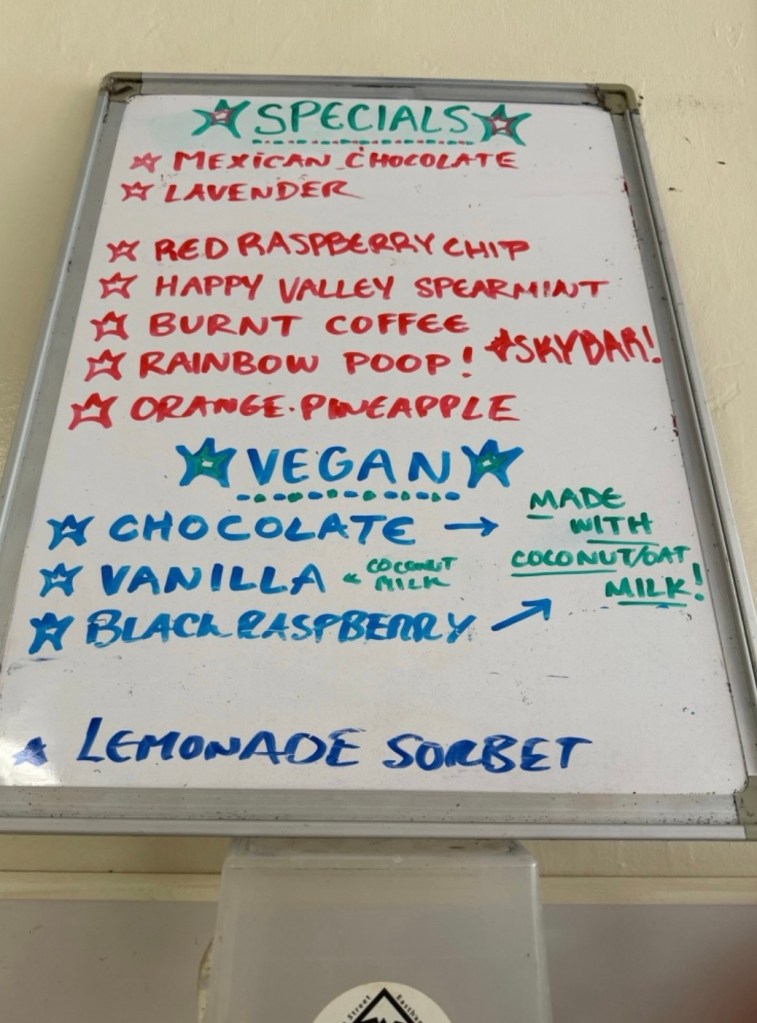 SPECIALS
MEXICAN CHOCOLATE
LAVENDER
RED RASPBERRY CHIP
HAPPY VALLEY SPEARMINT
BURNT COFFEE
RAINBOW POOP! *SKYBAR!
ORANGE-PINEAPPLE
VEGAN
CHOCOLATE → MADE WITH
COCONUT/OAT
MILK!
VANILLA COCONUT MILK
BLACK RASPBERRY
LEMONADE SORBET
Street